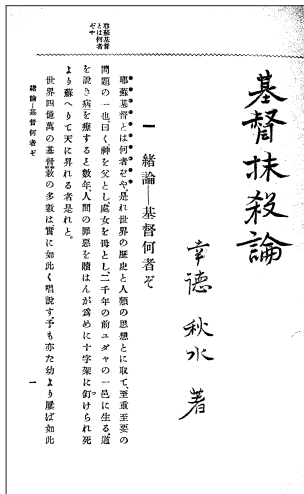 基督抹殺論
幸徳秋水著
一 緒論―基督何者ぞ
耶蘇基督とは何者ぞや、是れ世界の歴史と人類の思想とに取て、至重至要の
問題の一也、曰く、神を父とし、處女を母とし、二千年の前ユダヤの一邑に生る、道
を說き病を療すると數年、人間の罪惡を贖はんが爲めに十字架に釘けられ死
より蘇へりて天に昇れる者是れと。
世界四億萬の基督敎の多數は實に如此く唱說す、予も亦た幼より屢ば如此
耶蘇基督
とは何者
ぞや
緒論―基督何者ぞ
一